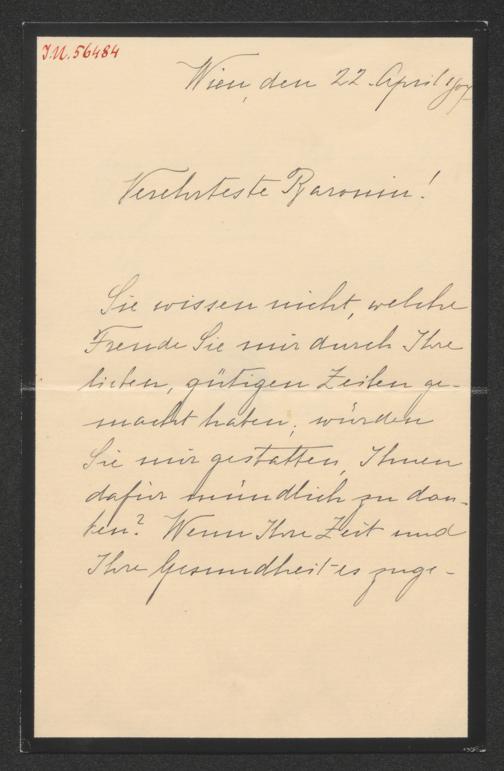 I.N. 56484
Wien, den 22. April 1907
Verehrteste Baronin!
Sie wissen nicht, welche
Freude Sie mir durch Ihre
lieben, gütigen Zeilen ge-
macht haben; würden
Sie mir gestatten, Ihnen
dafür mündlich zu dan-
ken? Wenn Ihre Zeit und
Ihre Gesundheit es zuge-